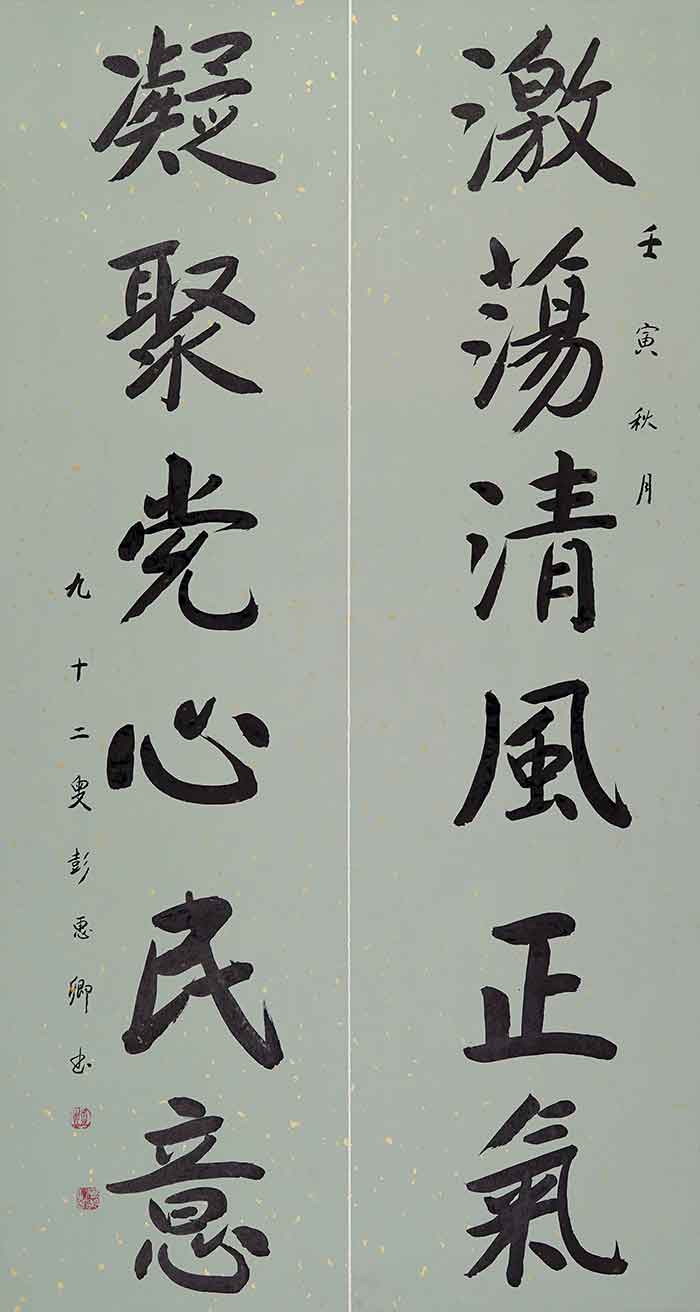 壬寅秋月
激蕩清風正氣
凝聚党心民意
九十二叟彭惠卿书